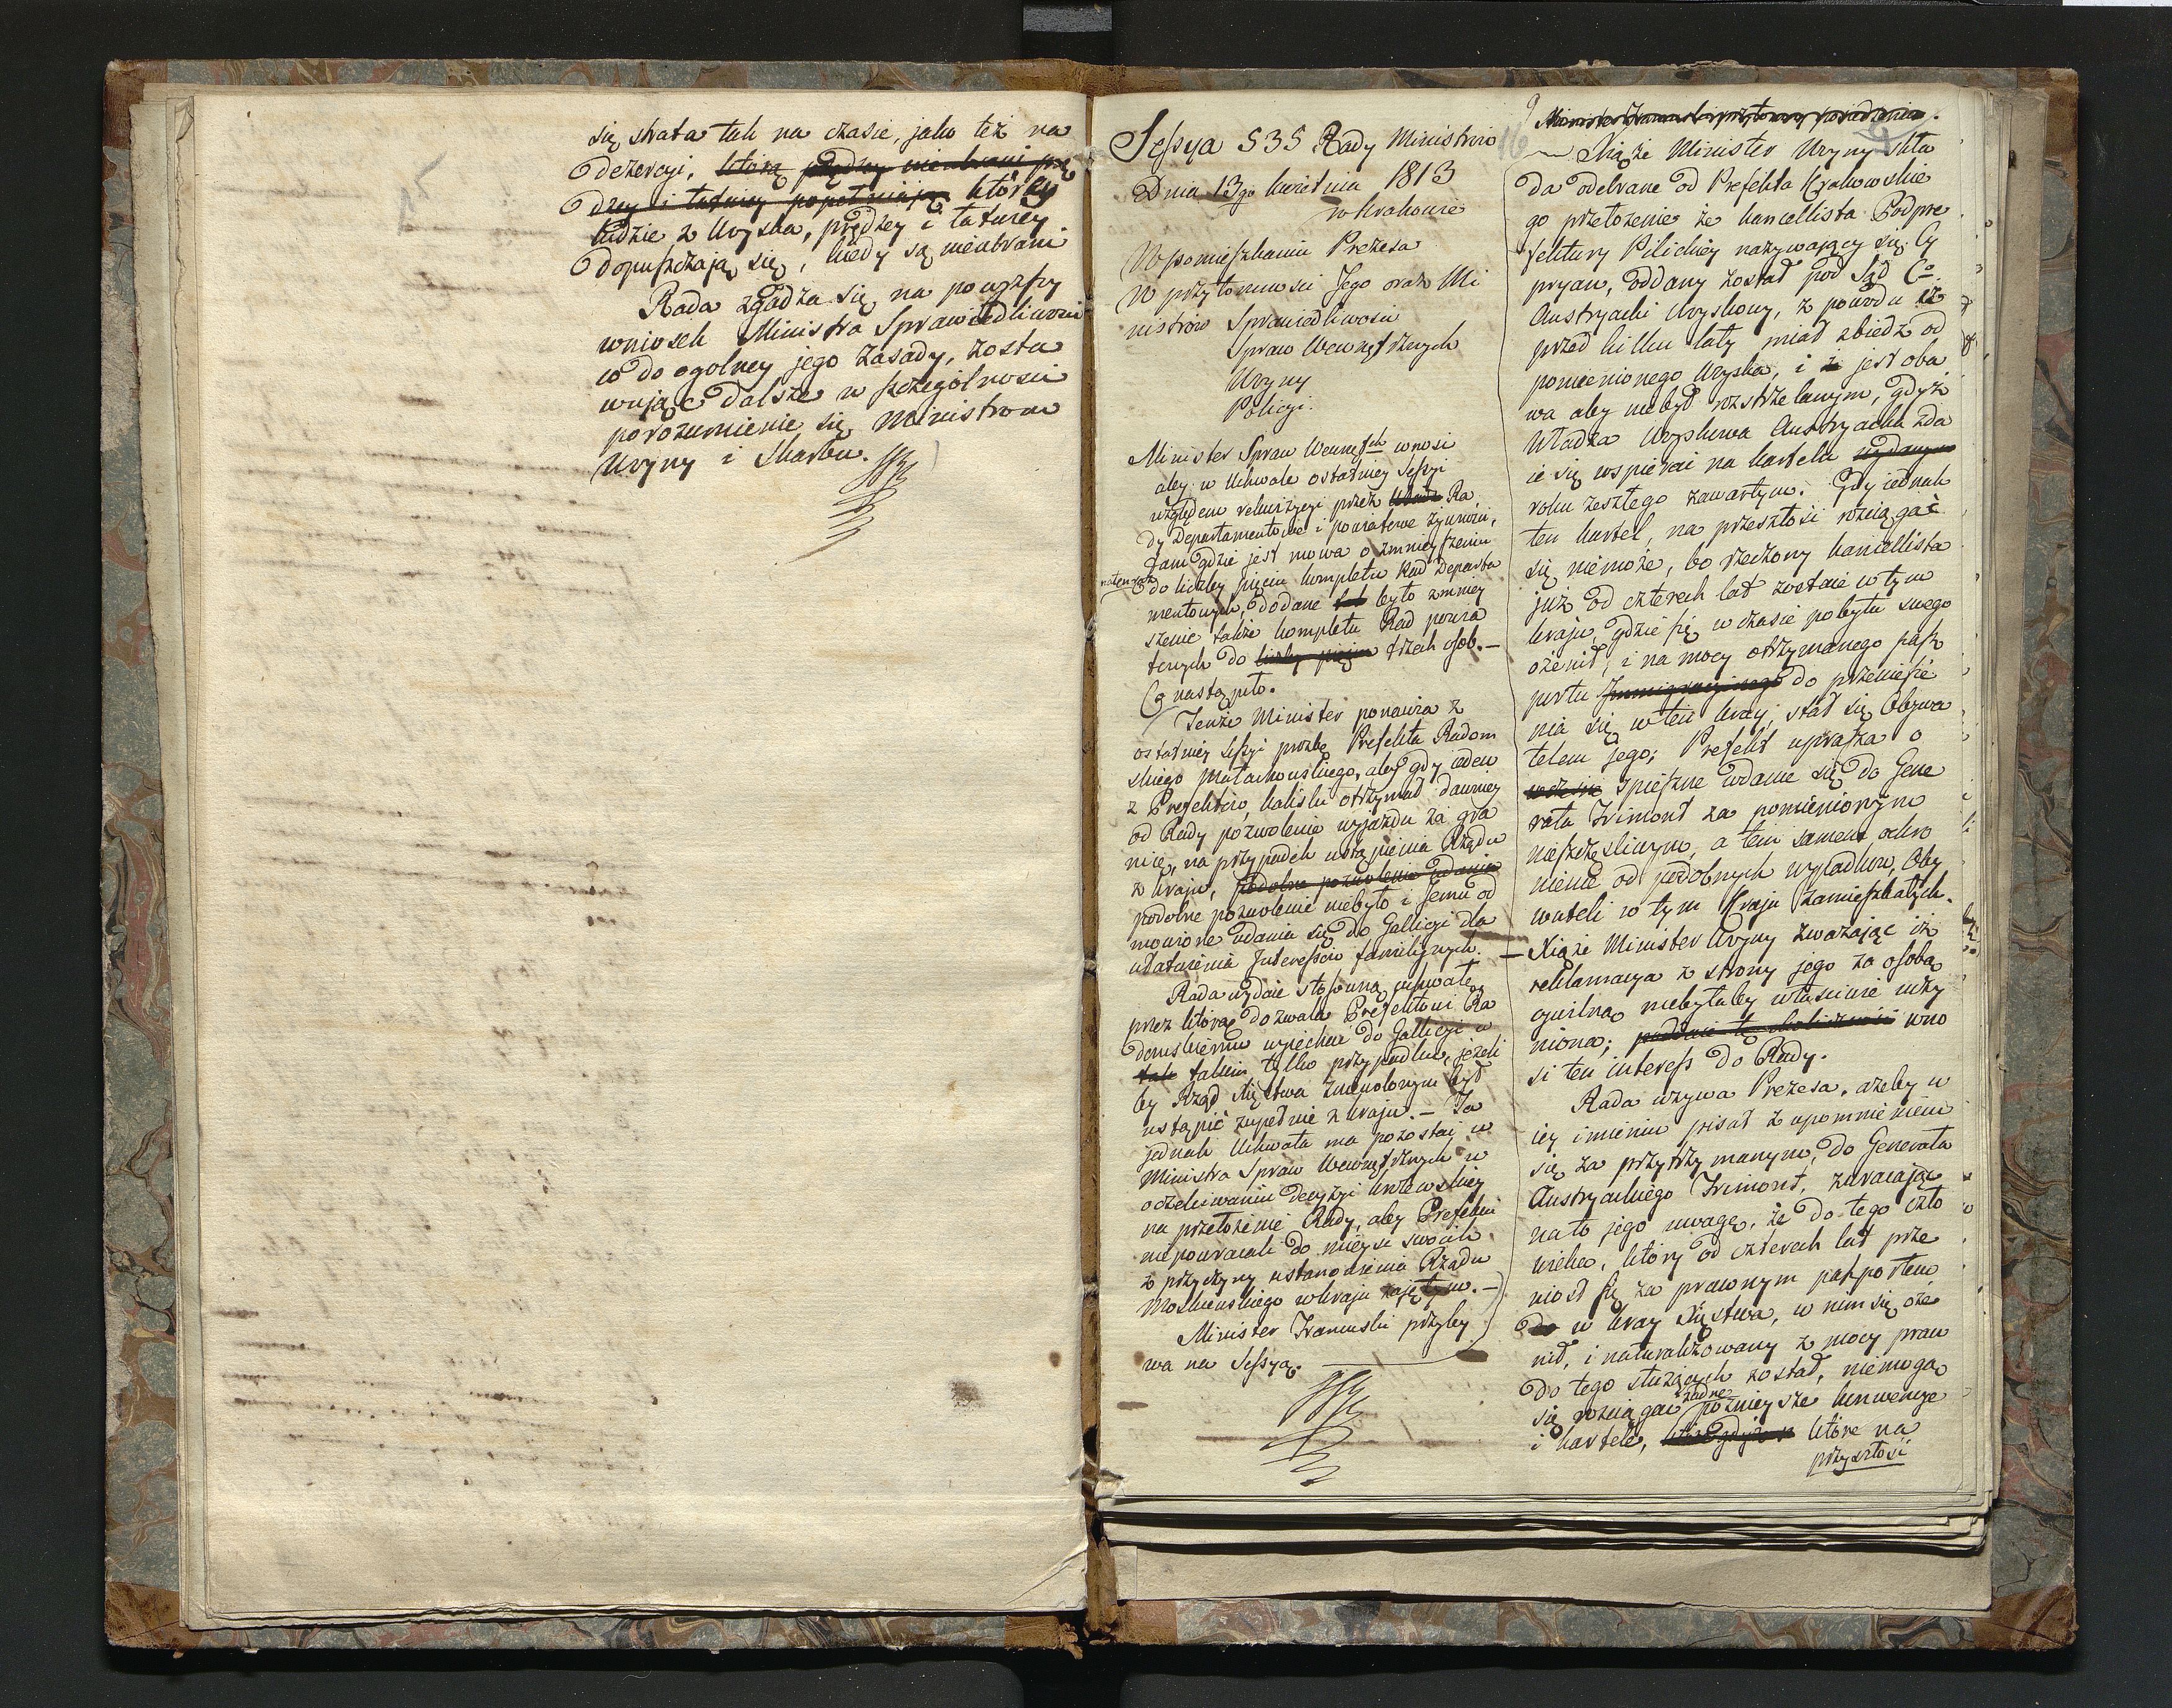 się strata tak na czasie, jako też na
dezercyi, którą prędzey nieubrani prę
dzey i łatwiey popełniają którey
ludzie z Woyska, prędzey i łatwiey
dopuszczają się, kiedy są nieubrani
Rada zgadza się na powyższy
wniosek Ministra Sprawiedliwości
co do ogolney jego zasady, zosta
wując dalsze w szczególności
porozumienie się Ministrom
Woyny i Skarbu.
Sessya 535 Rady Ministrów
Dnia 13go kwietnia 1813
w Krakowie
W pomieszkaniu Prezesa
W przytomności Jego oraz Mi
nistrów Sprawiedliwości
Spraw Wewnętrznych
Woyny
Policyi.
Minister Spraw Wewnętch wnosi
aby w Uchwale ostatniey Sessyi
względem rekwizycyi przez Ra
dy Departamentowe i powiatowe żywności,
tam gdzie jest mowa o zmnieyszeniu
do liczby pięciu kompletu Rad Departa
mentowych, dodane było zmniey
szenie także kompletu Rad powia
towych do liczby pięciu trzech osob.—
Co nastąpiło.
Tenże Minister ponawia z
ostatniey Sessyi prozbę Prefekta Radom
skiego Małachowskiego, aby gdy ieden
z Prefektów, kaliski otrzymał dawniey
od Rady pozwolenie wyjazdu za gra
nicę, na przypadek ustąpienia Rządu
z kraju, podobne pozwolenie udania
podobne pozwolenie niebyło i Jemu od
mowione udania się do Gallicyi dla
ułatwienia Interessów familiynych.
Rada wydaie stosowną uchwałę,
przez którą dozwala Prefektowi Ra
domskiemu wyiechać do Gallicyi w
tak takim tylko przypadku, jeżeli
by Rząd Xięstwa zniewolonym był
ustąpić zupełnie z kraju. — Ta
jednak Uchwała ma pozostać w
Ministra Spraw Wewnętrznych w
oczekiwaniu decyzyi królewskiey
na przełożenie Rady, aby Prefekci
niepowracali do mieysc swoich
z przyczyny ustanowienia Rządu
Moskiewskiego w kraju zajętym.—
Minister przyby
wa na Sessyą.
9
16
Xiąże Minister Woyny skła
da odebrane od Prefekta Krakowskie
go przełożenie że kancellista Podpre
fektury Pilickiey nazywający się Cy
pryan, oddany został pod Sąd Co
Austryacki Woyskowy, z powodu iż
przed kilku laty miał zbiedz od
pomienionego Woyska, i że jest oba
wa aby niebył rozstrzelanym, gdyż
Władza Woyskowa Austryacka zda
ie się wspierać na kartelu wydanym
roku zeszłego zawartym. Gdy iednak
ten kartel, na przeszłość rozciągać
się niemoże, bo rzeczony kancellista
już od czterech lat zostaie w tym
kraju, gdzie się w czasie pobytu swego
ożenił, i na mocy otrzymanego pasz
portu Immigracyinego do przeniesie
nia się w ten kray, stał się Obywa
telem Jego; Prefekt uprasza o
wczesne spieszne udanie się do Gene
rała Frimont za pomienionym
nieszczęśliwym, a tem samem ochro
nienie od podobnych wypadków, Oby
wateli w tym Kraju zamieszkałych.
— Xiąże Minister Woyny zważając iż
reklamacya z strony jego za osobą
cywilną niebyłaby właściwie uczy
niona; wno
si ten interess do Rady.
Rada wzywa Prezesa, ażeby w
iey imieniu pisał z upomnieniem
się za przytrzymanym, do Generała
Austryackiego Frimont, zwracając
na to jego uwagę, że do tego czło
wieka, który od czterech lat prze
niosł się za prawnym paszportem
do w kray Xięstwa, w nim się oże
nił, i naturalizowany z mocy praw
do tego służących został, niemogą
się rozciągać żadne poznieysze konwencye
i kartele, które na
przyszłość